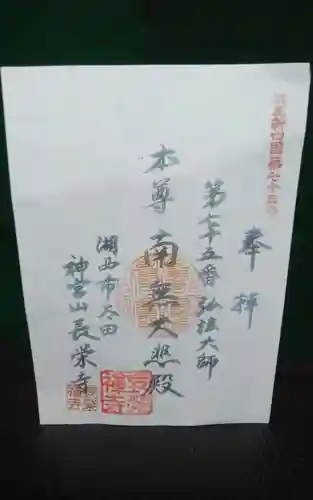 奉拝
第七十五番 弘法大師
本尊 南無大悲殿
湖西市太田
神宮山 長栄寺